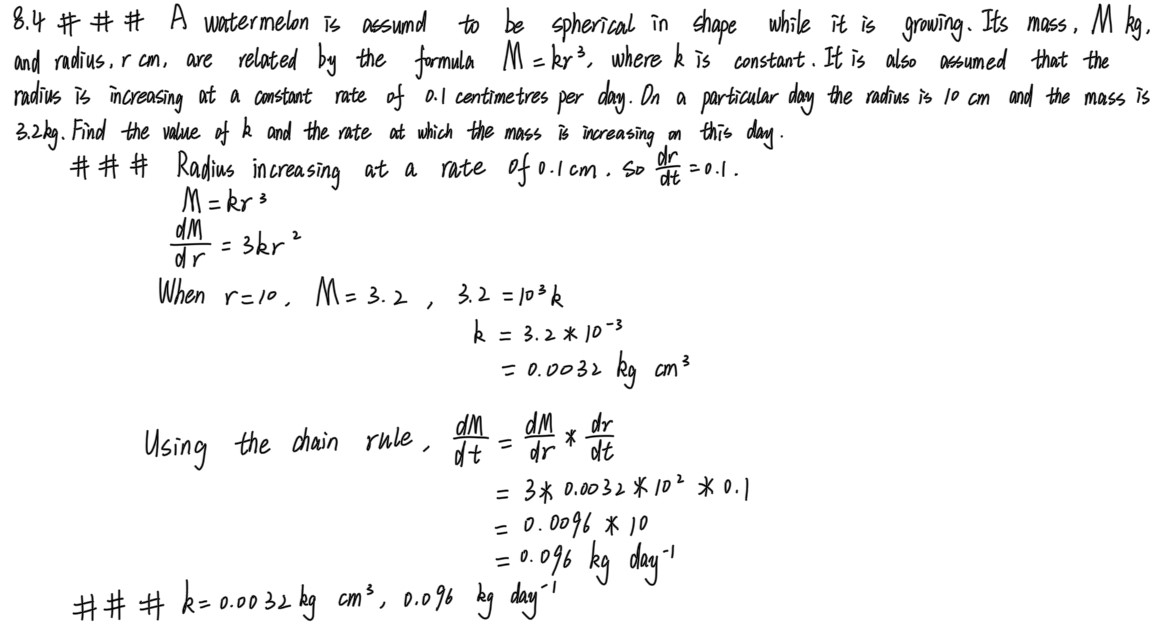 8.4 # # # A watermelon is assumd to be spherical in shape while it is growing. Its mass, M kg,
and radius, r cm, are related by the formula M = kr³, where k is constant. It is also assumed that the
radius is increasing at a constant rate of 0.1 centimetres per day. On a particular day the radius is 10 cm and the mass is
3.2kg. Find the value of k and the rate at which the mass is increasing on this day.
# # # Radius increasing at a rate of 0.1 cm. So dr/dt = 0.1.
M = kr³
dM/dr = 3kr²
When r=10, M = 3.2, 3.2 = 10³k
k = 3.2 * 10⁻³
= 0.0032 kg cm³
Using the chain rule, dM/dt = dM/dr * dr/dt
= 3 * 0.0032 * 10² * 0.1
= 0.0096 * 10
= 0.096 kg day⁻¹
# # # k = 0.0032 kg cm³, 0.096 kg day⁻¹